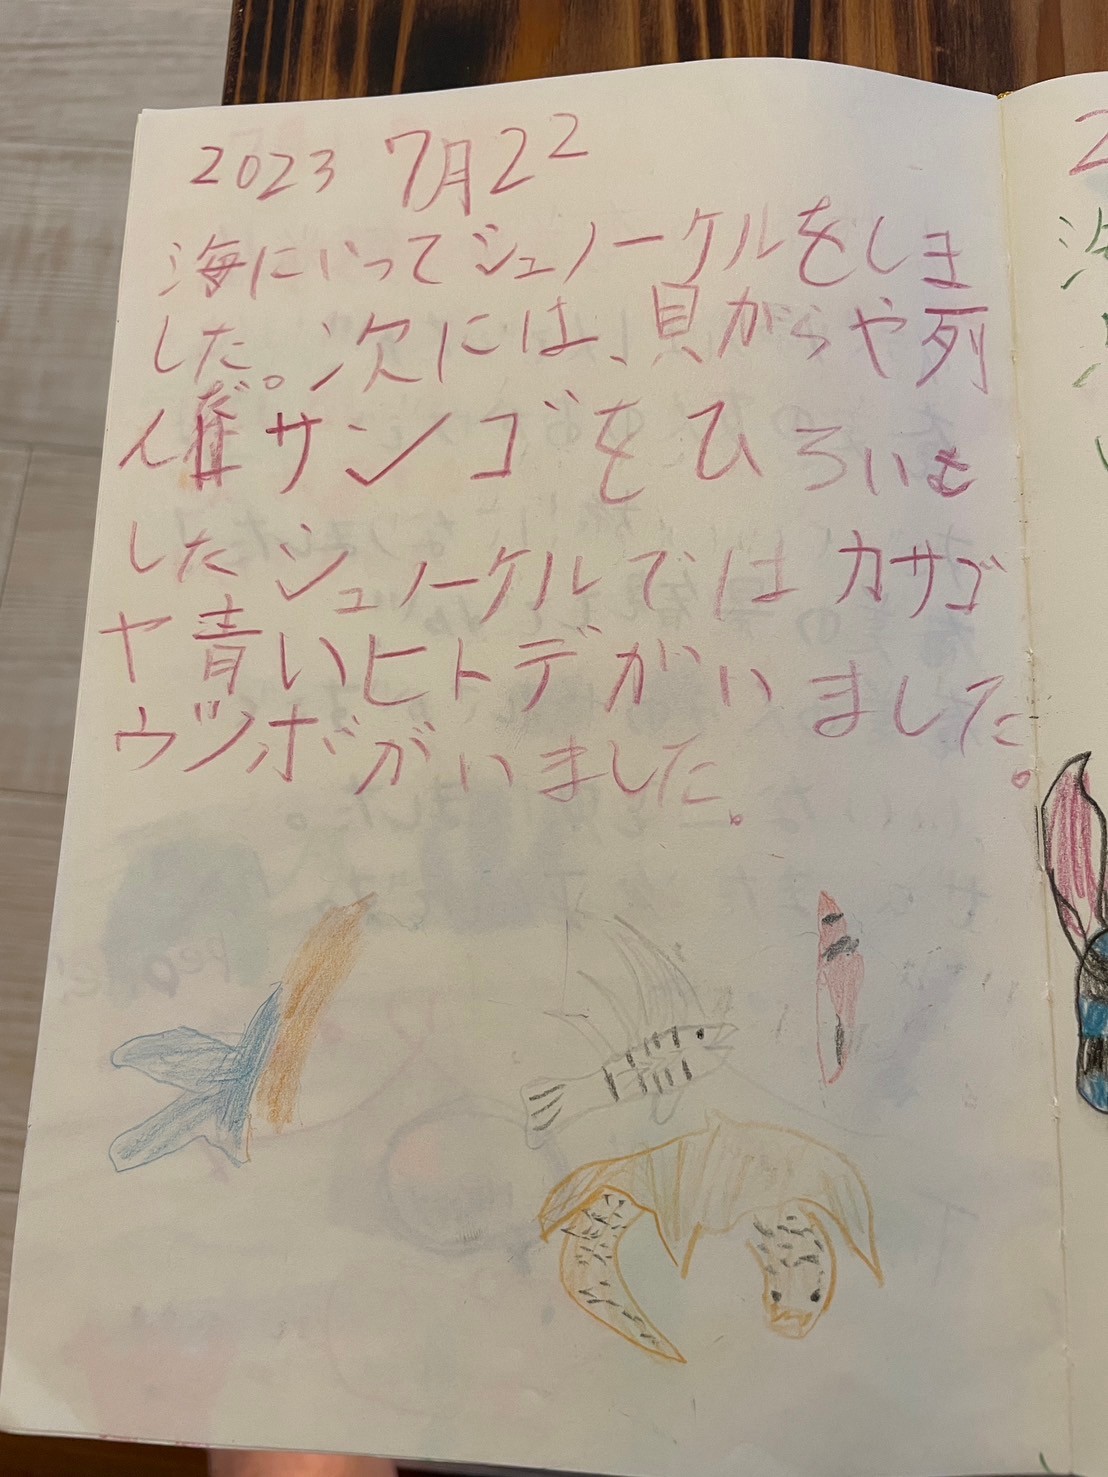 2023 7月22
海にいってシュノーケルをしま
した。次には、貝がらや死
んだサンゴをひろいま
したシュノーケルではカサゴ
や青いヒトデがいました。
ウツボがいました。